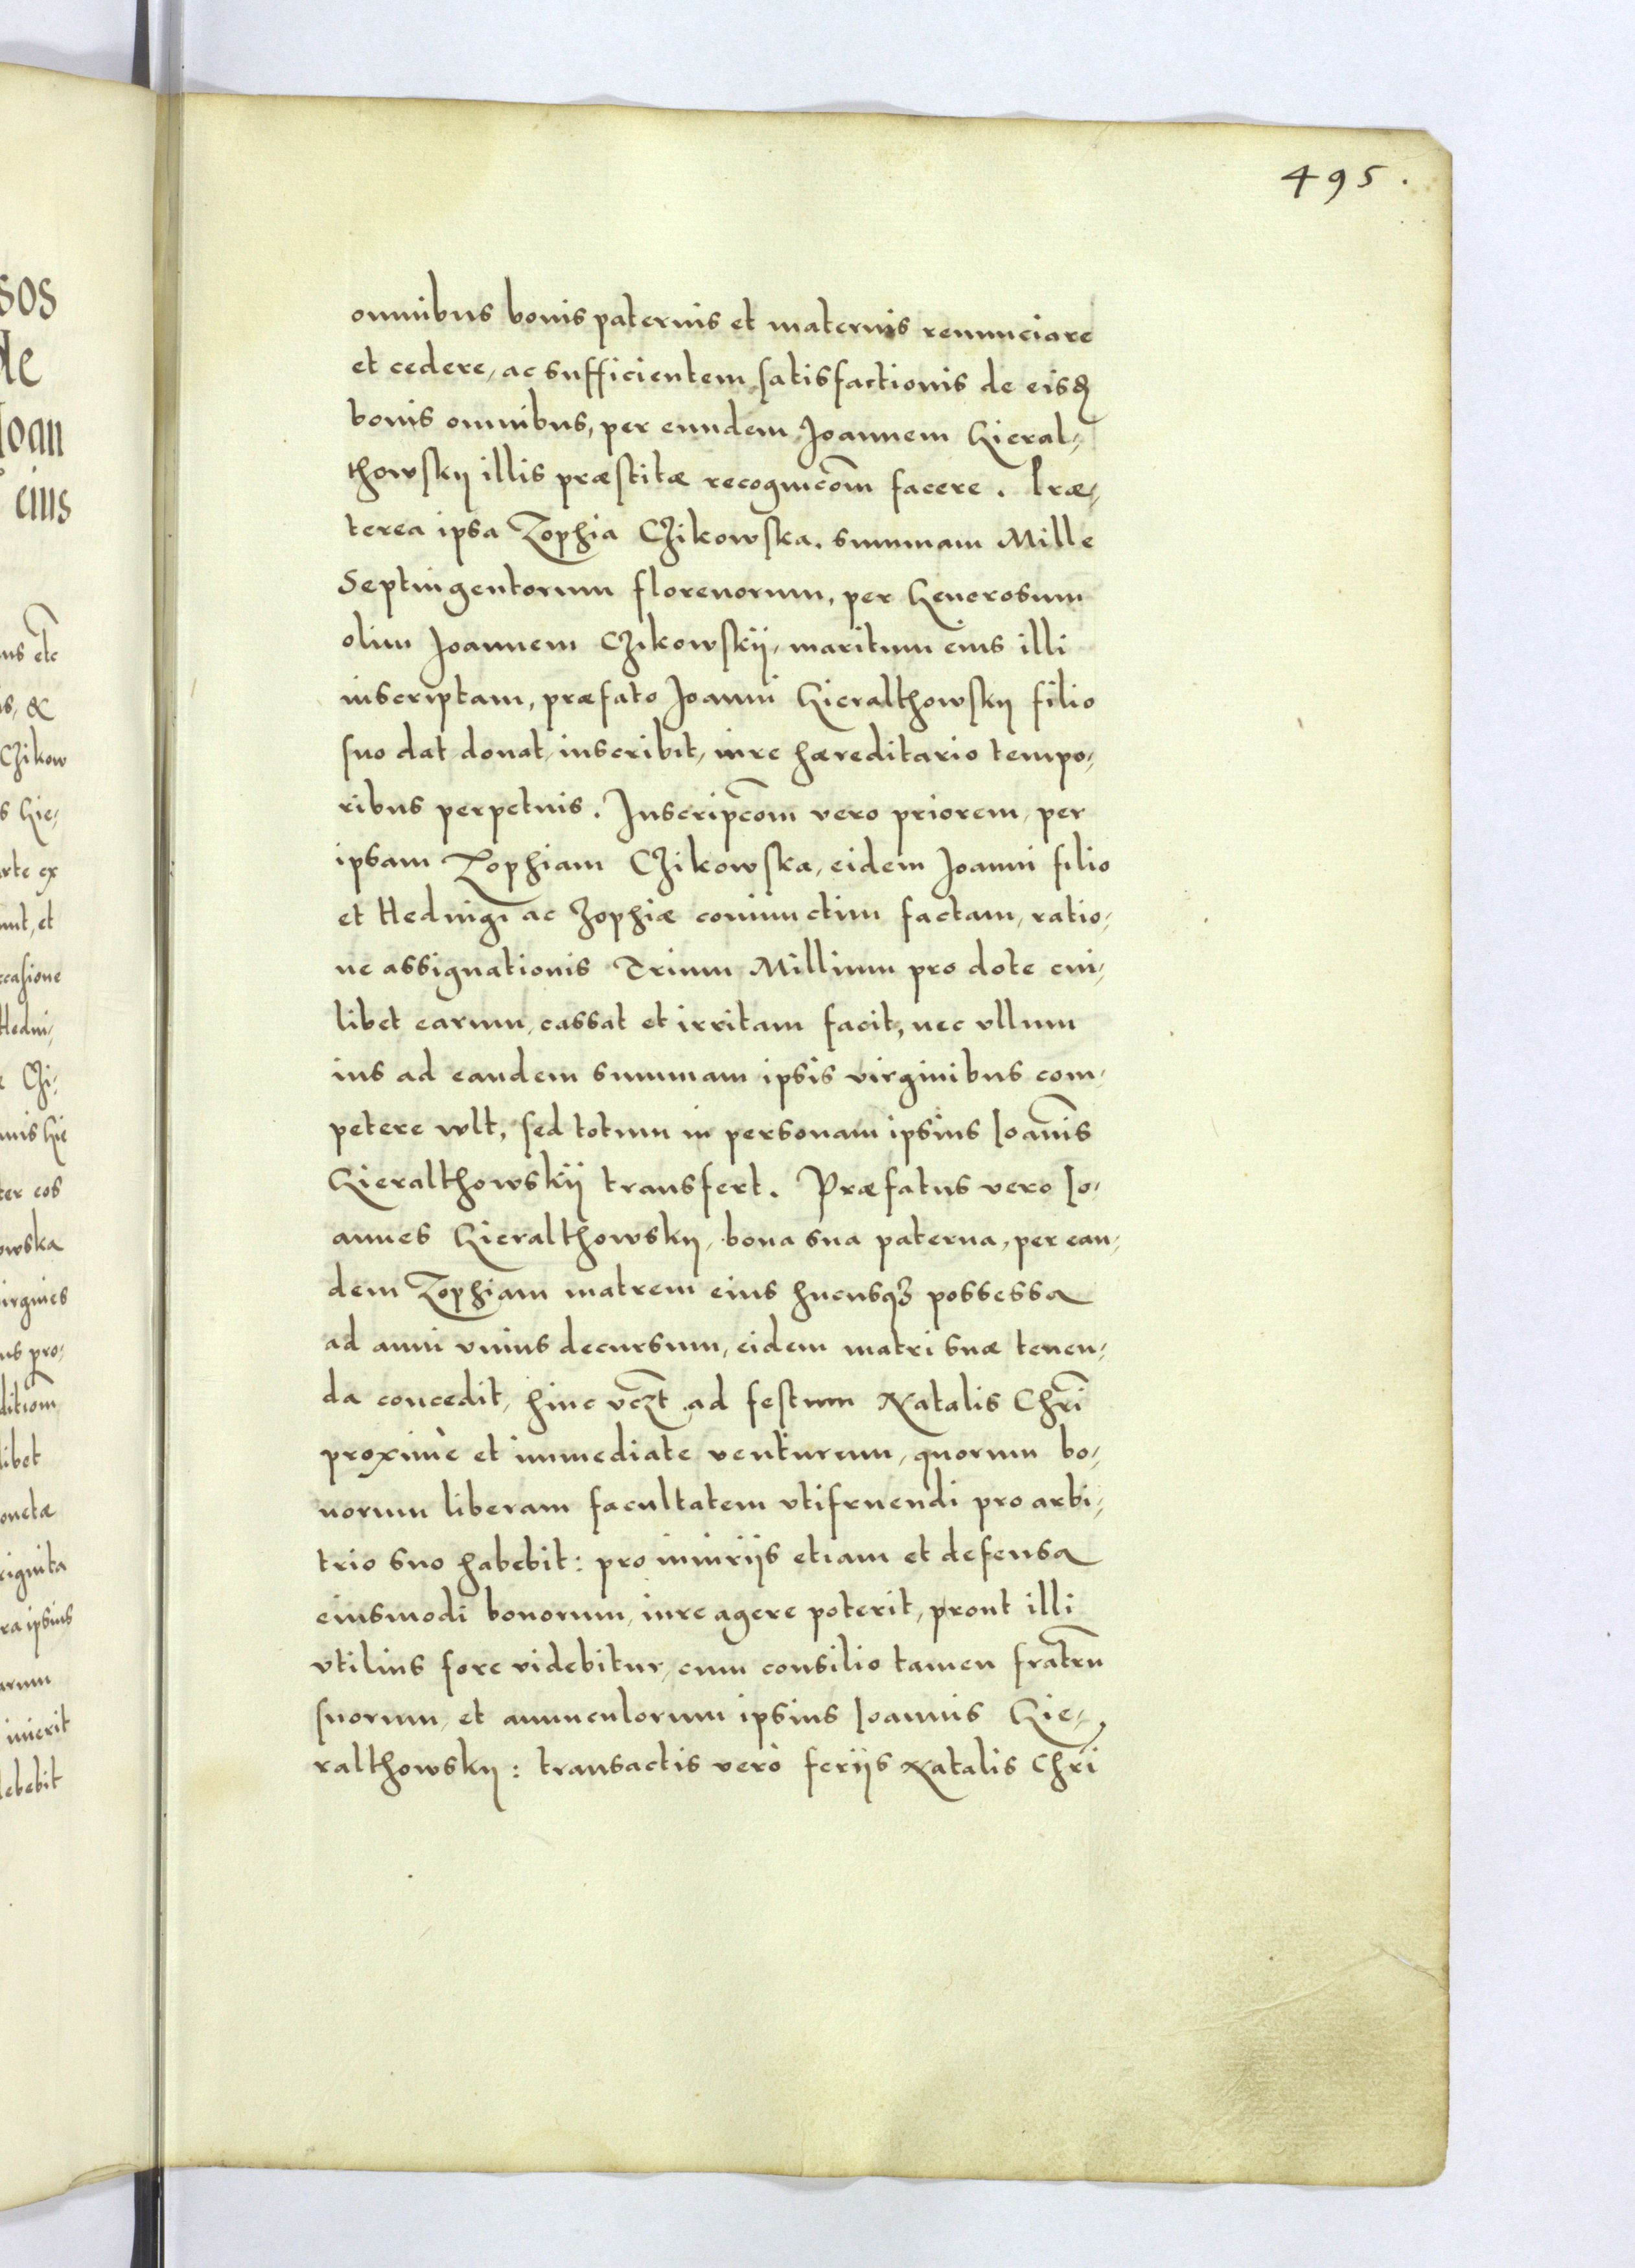 495.
omnibus bonis paternis et maternis renunciare
et cedere, ac sufficientem satisfactionis de eisd
bonis omnibus, per eundem Joannem Gieral,
thowsky illis præstitæ recognicõm facere. Præ,
terea ipsa Zophia Czikowska, summam Mille
Septingentorum florenorum, per Generosum
olim Joannem Czikowskÿ, maritum eius illi
inscriptam, præfato Joanni Gieralthowsky filio
suo dat donat, inscribit, iure hæreditario tempo,
ribus perpetuis. Inscripcõm vero priorem, per
ipsam Zophiam Czikowska, eidem Joanni filio
et Heduigi ac Zophiæ coniunctim factam, ratio,
ne assignationis Trium Millium pro dote cui,
libet earum, cassat et irritam facit, nec vllum
ius ad eandem summam ipsis virginibus com,
petere vult, sed totum in personam ipsius Joañis
Gieralthowskÿ transfert. Præfatus vero Jo,
annes Gieralthowsky, bona sua paterna, per ean,
dem Zophiam matrem eius hucusqȝ possessa
ad anni vnius decursum, eidem matri suæ tenen,
da concedit, hinc vczt ad festum Natalis Chri
proxime et immediate venturum, quorum bo,
norum liberam facultatem vtifruendi pro arbi,
trio suo habebit: pro iniuriis etiam et defensa
eiusmodi bonorum, iure agere poterit, prout illi
vtilius fore videbitur, cum consilio tamen fratrũ
suorum, et auunculorum ipsius Joannis Gie,
ralthowsky: transactis verò feriis Natalis Chri